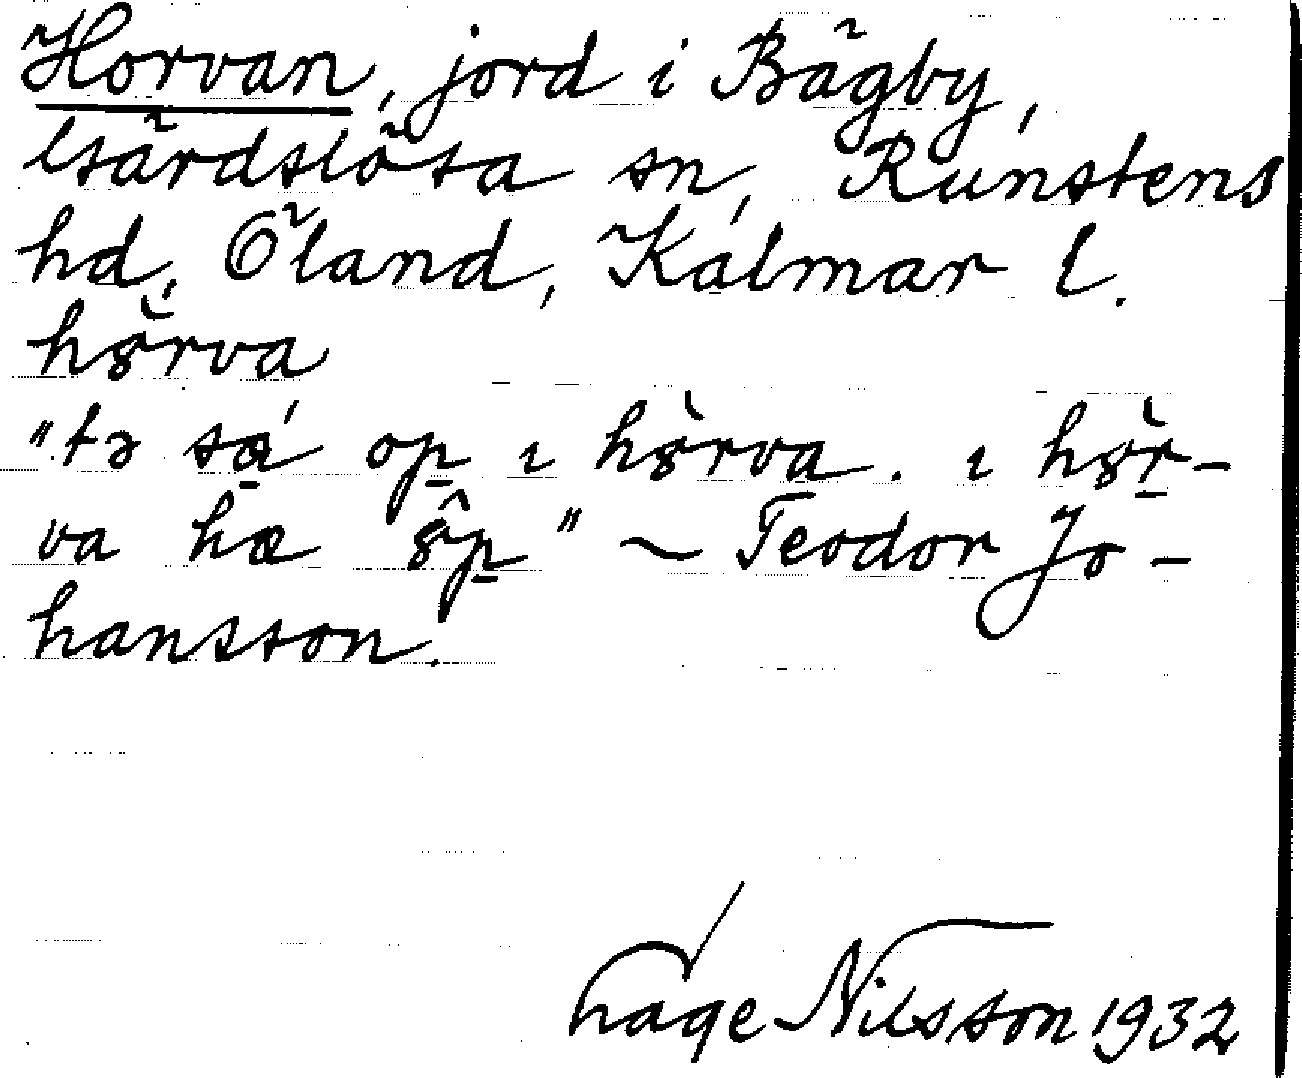 Horvan, jord i Bägby,
Gärdslösa sn, Runstens
hd, Öland, Kalmar l.
hɞ̌rva
"tə sá op ɩ hɞ̀rva. ɩ hɞ̀r-
va hæ ɞ̂p" ~ Teodor Jo-
hansson.
Åage Nilsson 1932